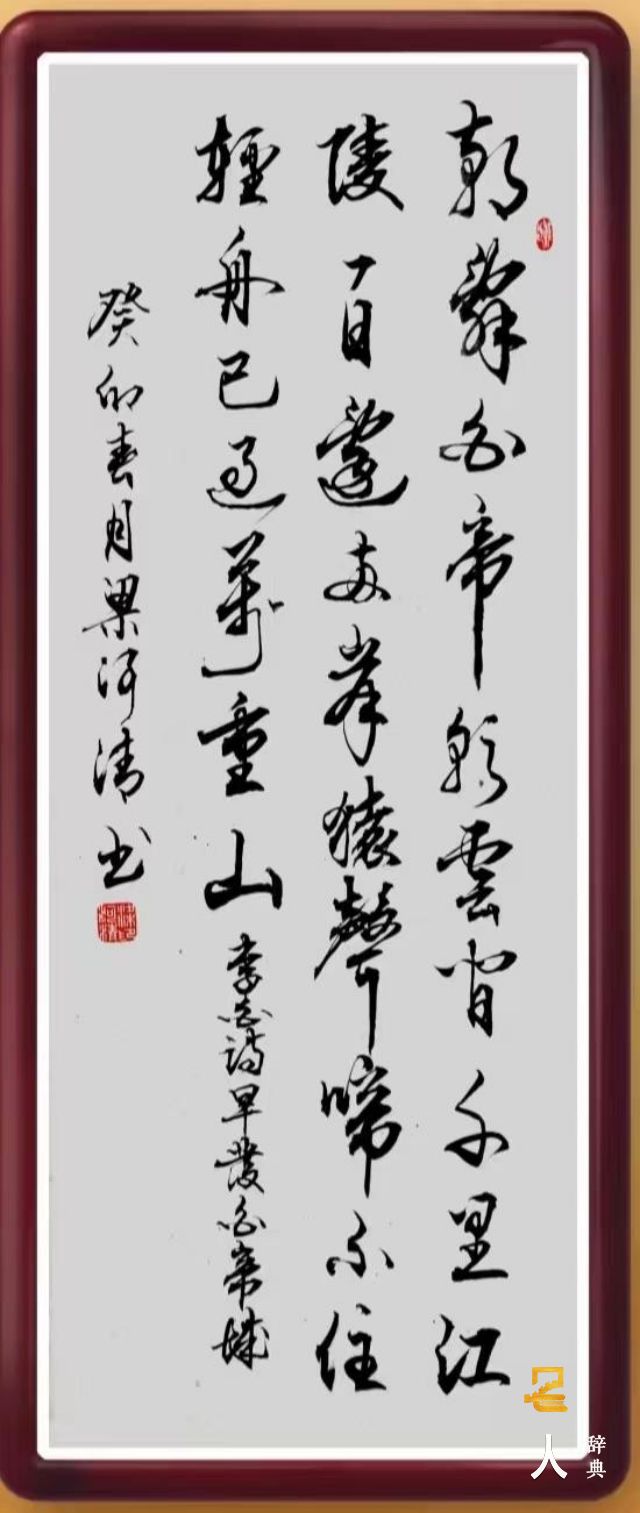 朝辭白帝彩雲間千里江
陵一日還兩岸猿聲啼不住
輕舟已過萬重山
李白詩早發白帝城
癸卯春月梁河清書
名人辞典